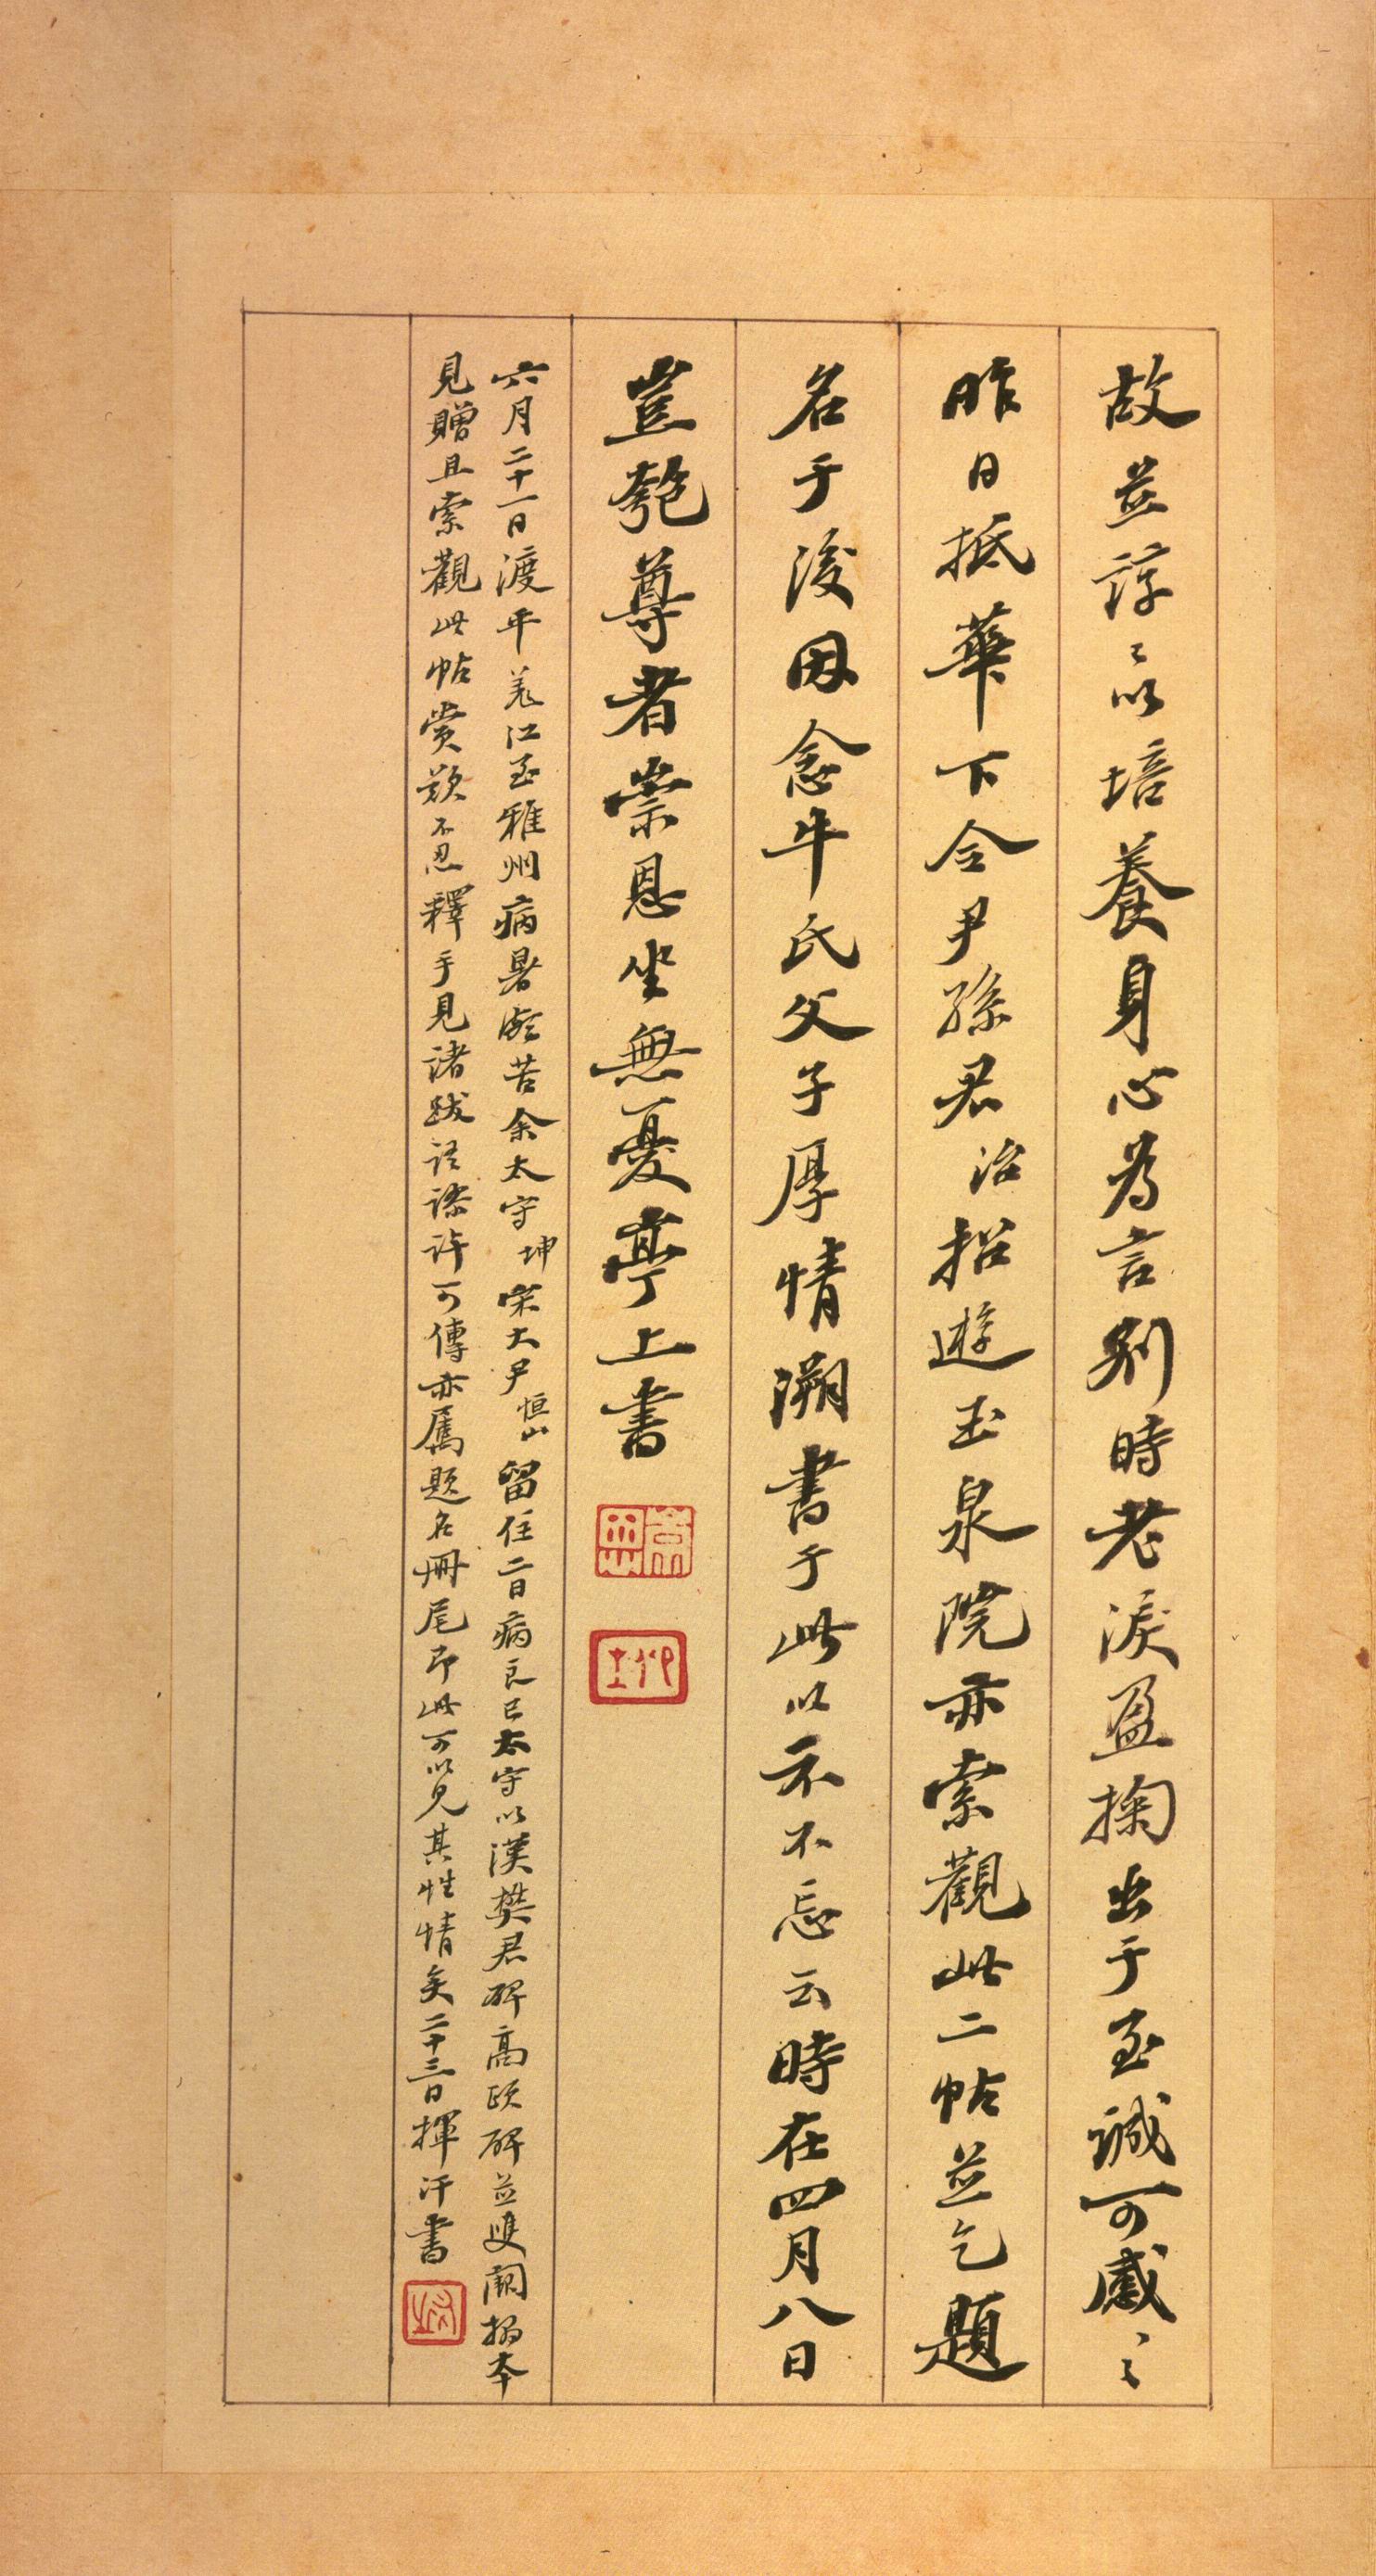 故並諄々以培養身心為言別時老淚盈掬出于至誠可感々
昨日抵華下令尹孫君治招遊玉泉院亦索觀此二帖並乞題
名于後因念牛氏父子厚情溯書于此以示不忘云時在四月八日
豈匏尊者崇恩坐無憂亭上書
六月二十一日渡平羌江至雅州病暑頗苦余太守坤宋大尹恒山留住二日病良已太守以漢樊君碑高頤碑並雙闕搨本
見贈且索觀此帖賞歎不忍釋手見諸跋語謬許可傳亦屬題名冊尾即此可以見其性情矣二十三日揮汗書